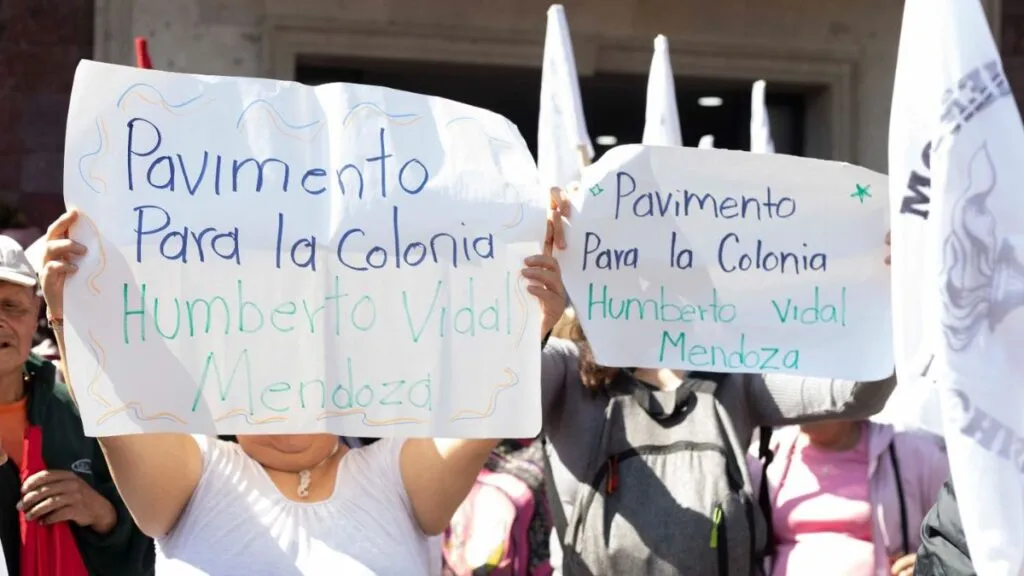 Pavimento
Para la Colonia
Humberto Vidal
Mendoza
Pavimento
Para la Colonia
Humberto Vidal
Mendoza